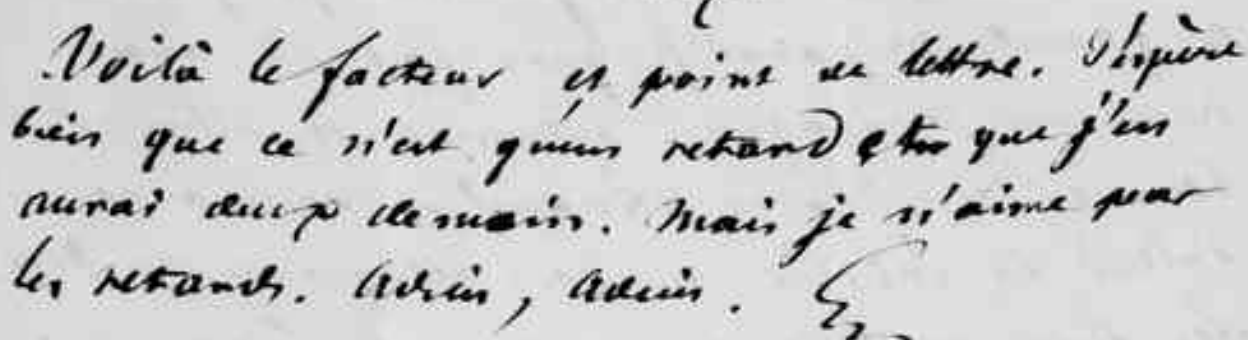 Voilà le facteur et point de lettre. J'espère
bien que ce n'est qu'un retard et que j'en
aurai deux demain. Mais je n'aime pas
les retards. Adieu, adieu.